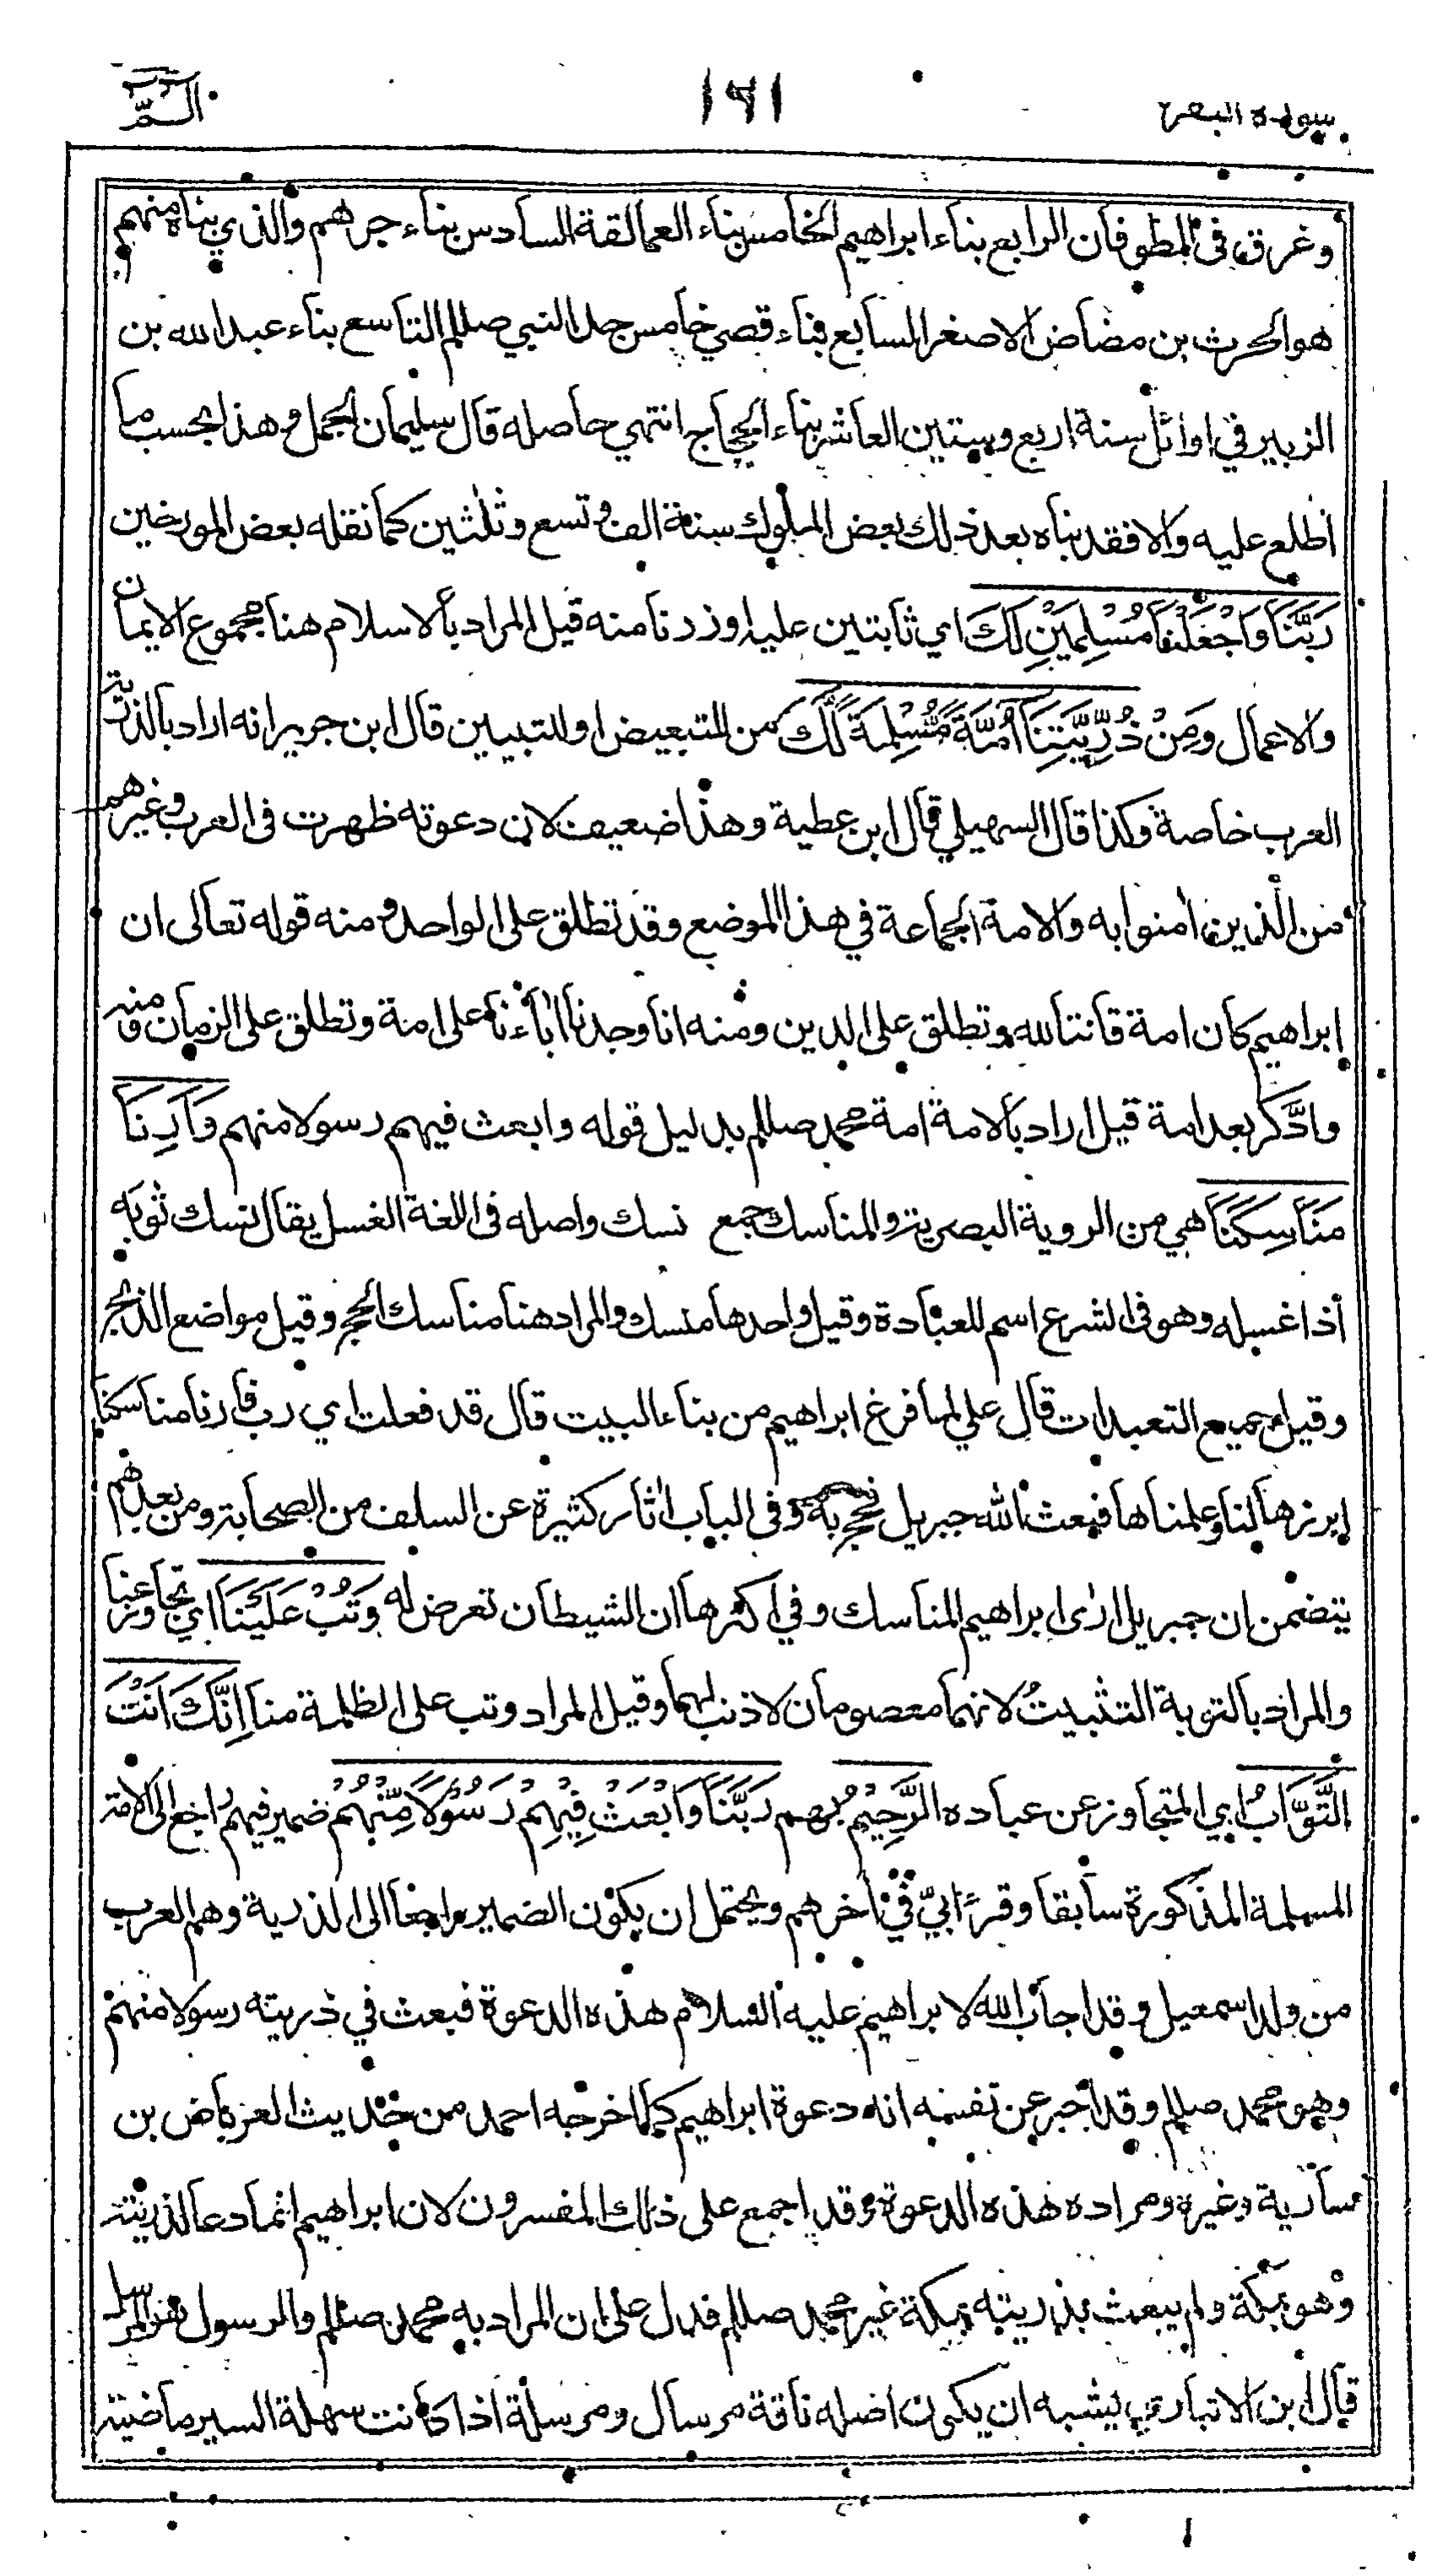 سورة البقرة
١٦١
الم
وغرق في الطوفان الرابع بناء ابراهيم الخامس بناء العمالقة السادس بناء جرهم والذي بناه منهم
هو الحرث بن مضاض الاصغر السابع بناء قصي خامس جد النبي صللم التاسع بناء عبد الله بن
الزبير في اوائل سنة اربع وستين العاشر بناء الحجاج انتهي حاصله قال سليمان الجمل وهذا بحسب ما
اطلع عليه والا فقد بناه بعد ذلك بعض الملوك سنة الف وتسع وثلثين كما نقله بعض المورخين
رَبَّنَا وَاجْعَلْنَا مُسْلِمَيْنِ لَكَ اي ثابتين عليه او زدنا منه قيل المراد بالاسلام هنا مجموع الايمان
والاعمال وَمِنْ ذُرِّيَّتِنَا اُمَّةً مُّسْلِمَةً لَّكَ من للتبعيض او للتبيين قال ابن جرير انه اراد بالذرية
العرب خاصة وكذا قال السهيلي قال ابن عطية وهذا ضعيف لان دعوته ظهرت في العرب وغيرهم
من الذين امنوا به والامة الجماعة في هذا الموضع وقد تطلق على الواحد ومنه قوله تعالى ان
ابراهيم كان امة قانتا لله وتطلق على الدين ومنه انا وجدنا اباءنا على امة وتطلق على الزمان ومنه
وادَّكر بعد امة قيل اراد بالامة امة محمد صللم بدليل قوله وابعث فيهم رسولا منهم وَاَرِنَا
مَنَاسِكَنَا هي من الروية البصرية والمناسك جمع نسك واصله في اللغة الغسل يقال نسك ثوبه
أذا غسله وهو في الشرع اسم للعبادة وقيل واحدها منسك والمراد هنا مناسك الحج وقيل مواضع الذبح
وقيل جميع التعبدات قال علي لما فرغ ابراهيم من بناء البيت قال قد فعلت اي رب فارنا مناسكنا
ابرزها لنا وعلمناها فبعث الله جبريل فحج به وفي الباب اثار كثيرة عن السلف من الصحابة ومن بعدهم
يتضمن ان جبريل ارى ابراهيم المناسك وفي اكثرها ان الشيطان تعرض له وَتُبْ عَلَيْنَا اي تجاوز عنا
والمراد بالتوبة التثبيت لانهما معصومان لا ذنب لهما وقيل المراد وتب على الظلمة منا اِنَّكَ اَنْتَ
التَّوَّابُ اي المتجاوز عن عباده الرَّحِيْمُ بهم رَبَّنَا وَابْعَثْ فِيْهِمْ رَسُوْلًا مِّنْهُمْ ضمير فيهم راجع الى الامة
المسلمة المذكورة سابقا وقرء ابيّ في آخرهم ويحتمل ان يكون الضمير راجعا الى الذرية وهم العرب
من ولد اسمعيل وقد اجاب الله لابراهيم عليه السلام هذه الدعوة فبعث في ذريته رسولا منهم
وهو محمد صللم وقد اخبر عن نفسه انه دعوة ابراهيم كما اخرجه احمد من حديث العرباض بن
سارية وغيره ومراده هذه الدعوة وقد اجمع على ذلك المفسرون لان ابراهيم انما دعا لذريته
وهو بمكة ولم يبعث بذريته بمكة غير محمد صللم فدل على ان المراد به محمد صللم والرسول هو المرسل
قال ابن الانباري يشبه ان يكون اصله ناقة مرسال ومرسلة اذا كانت سهلة السير ماضية